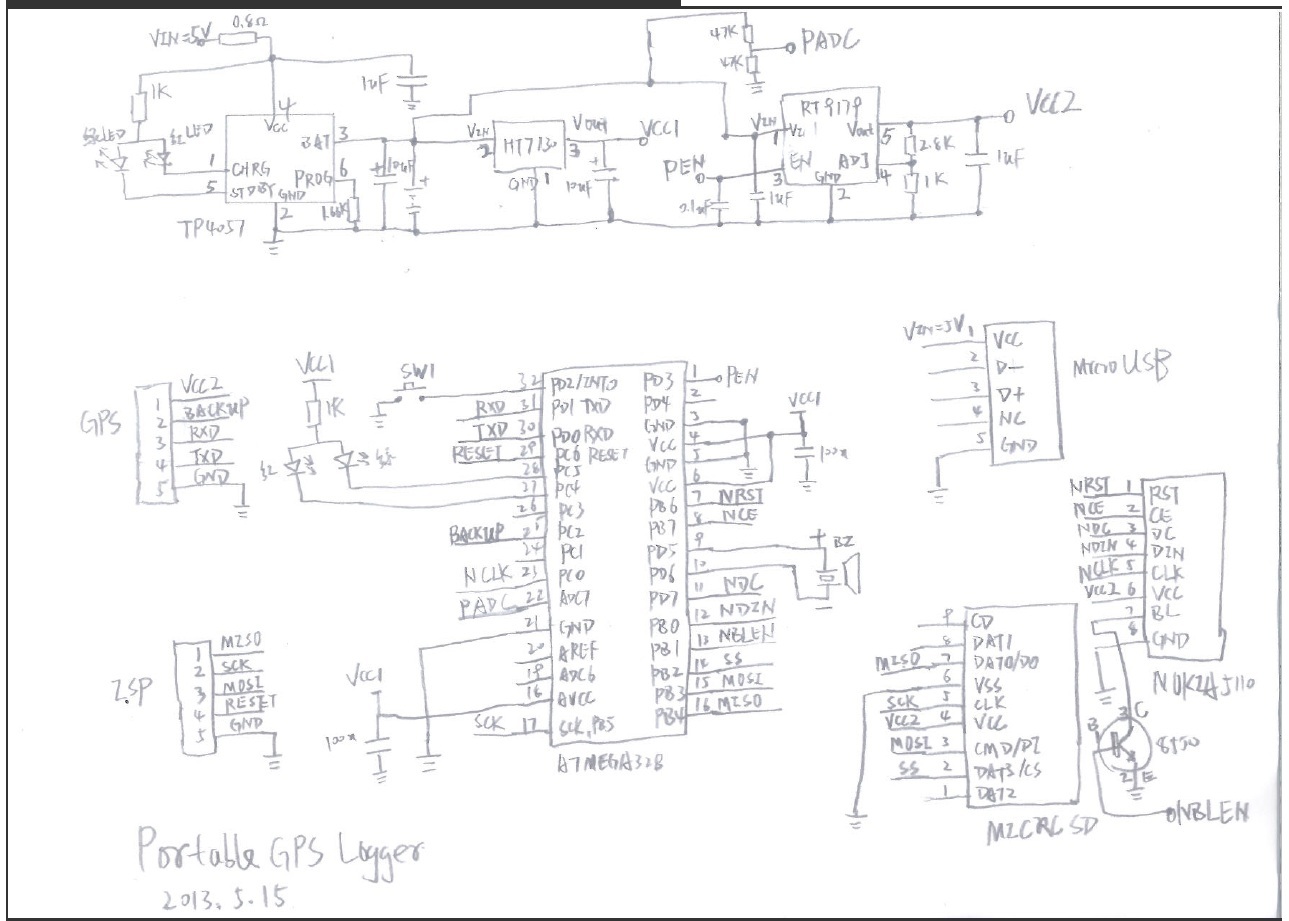 VIN=5V
0.8Ω
1K
1uF
绿LED
红LED
4
VCC
BAT 3
1 CHRG
PROG 6
5 STDBY GND
2
1.66K
TP4057
10uF
VIN
2 HT7130 3
Vout
VCC1
GND 1
10uF
47K
47K
PADC
RT9179
VIN
1
Vout 5
PEN
EN
3
ADJ 4
GND
2
0.1uF
1uF
2.8K
1K
1uF
VCC2
GPS
1 VCC2
2 BACKUP
3 RXD
4 TXD
5 GND
VCC1
1K
红
绿
SW1
32 PD2/INT0
RXD 31 PD1 TXD
TXD 30 PD0 RXD
RESET 29 PC6 RESET
28 PC5
27 PC4
26 PC3
BACKUP 25 PC2
24 PC1
NCLK 23 PC0
PADC 22 ADC7
21 GND
20 AREF
19 ADC6
18 AVCC
SCK 17 SCK, PB5
PD3 1 PEN
PD4 2
GND 3
VCC 4
GND 5
VCC 6
PB6 7 NRST
PB7 8 NCE
PD5 9
PD6 10
PD7 11 NDC
PB0 12 NDIN
PB1 13 NBLEN
PB2 14 SS
PB3 15 MOSI
PB4 16 MISO
ATMEGA328
VCC1
100n
+ BZ
VCC1
100n
ISP
1 MISO
2 SCK
3 MOSI
4 RESET
5 GND
VIN=5V 1 VCC
2 D-
3 D+
4 NC
5 GND
Micro USB
NRST 1 RST
NCE 2 CE
NDC 3 DC
NDIN 4 DIN
NCLK 5 CLK
VCC2 6 VCC
7 BL
8 GND
NOKIA5110
9 CD
8 DAT1
MISO 7 DAT0/DO
6 VSS
SCK 5 CLK
VCC2 4 VCC
MOSI 3 CMD/DI
SS 2 DAT3/CS
1 DAT2
MICRO SD
3 C
B
8550
2 E
NBLEN
Portable GPS Logger
2013.5.15